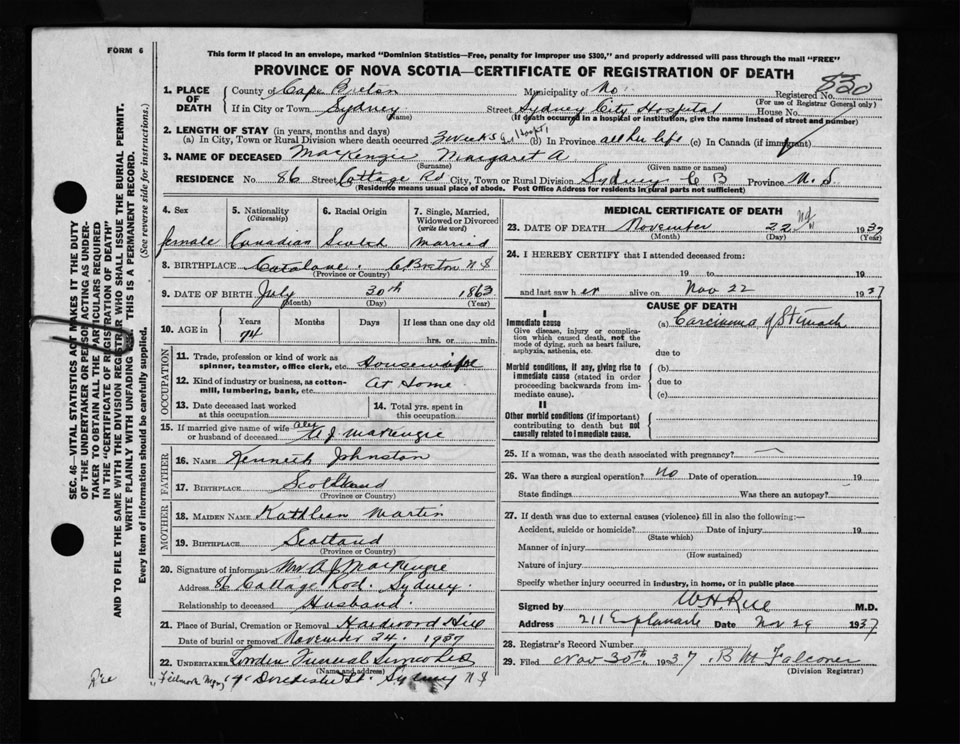 FORM 6
This form if placed in an envelope, marked "Dominion Statistics—Free, penalty for improper use $300," and properly addressed will pass through the mail "FREE"
PROVINCE OF NOVA SCOTIA—CERTIFICATE OF REGISTRATION OF DEATH
830
1. PLACE OF DEATH
County of Cape Breton Municipality of No. Registered No.
(For use of Registrar General only)
If in City or Town Sydney Street Sydney City Hospital House No.
(Name) (If death occurred in a hospital or institution, give the name instead of street and number)
2. LENGTH OF STAY (in years, months and days)
(a) In City, Town or Rural Division where death occurred 3 weeks (b) In Province all her life (c) In Canada (if immigrant)
3. NAME OF DECEASED MacKenzie Margaret A.
(Surname) (Given name or names)
RESIDENCE No. 86 Street Cottage Rd City, Town or Rural Division Sydney C B Province N. S.
(Residence means usual place of abode. Post Office Address for residents in rural parts not sufficient)
4. Sex female
5. Nationality (Citizenship) Canadian
6. Racial Origin Scotch
7. Single, Married, Widowed or Divorced (write the word) Married
8. BIRTHPLACE Catalone. C. Breton N S
(Province or Country)
9. DATE OF BIRTH July 30th 1863
(Month) (Day) (Year)
10. AGE in Years Months Days If less than one day old
74 hrs. or min.
OCCUPATION
11. Trade, profession or kind of work as spinner, teamster, office clerk, etc. Housewife
12. Kind of industry or business, as cotton-mill, lumbering, bank, etc. At Home
13. Date deceased last worked at this occupation
14. Total yrs. spent in this occupation
15. If married give name of wife or husband of deceased Alex A J MacKenzie
FATHER
16. NAME Kenneth Johnston
17. BIRTHPLACE Scotland
(Province or Country)
MOTHER
18. MAIDEN NAME Kathleen Martin
19. BIRTHPLACE Scotland
(Province or Country)
20. Signature of informant Mr A J MacKenzie
Address 86 Cottage Rd. Sydney.
Relationship to deceased Husband.
21. Place of Burial, Cremation or Removal Hardwood Hill
Date of burial or removal November 24. 1937
22. UNDERTAKER Funeral Service Ltd
(Name and address)
Dorchester St. Sydney N S
MEDICAL CERTIFICATE OF DEATH
23. DATE OF DEATH November 22 nd 1937
(Month) (Day) (Year)
24. I HEREBY CERTIFY that I attended deceased from:
19 to 19
and last saw her alive on Nov 22 1937
CAUSE OF DEATH
I
Immediate cause
Give disease, injury or complication which caused death, not the mode of dying, such as heart failure, asphyxia, asthenia, etc.
(a) Carcinoma of Stomach
due to
Morbid conditions, if any, giving rise to immediate cause (stated in order proceeding backwards from immediate cause).
(b)
due to
(c)
II
Other morbid conditions (if important) contributing to death but not causally related to immediate cause.
25. If a woman, was the death associated with pregnancy?
26. Was there a surgical operation? No Date of operation 19
State findings Was there an autopsy?
27. If death was due to external causes (violence) fill in also the following:—
Accident, suicide or homicide? Date of injury 19
(State which)
Manner of injury
(How sustained)
Nature of injury
Specify whether injury occurred in industry, in home, or in public place
Signed by W H Rice M.D.
Address 211 Esplanade Date Nov 29 1937
28. Registrar's Record Number
29. Filed Nov 30th. 1937 B H Falconer
(Division Registrar)
SEC. 46—VITAL STATISTICS ACT MAKES IT THE DUTY
OF THE UNDERTAKER OR PERSON ACTING AS UNDER-
TAKER TO OBTAIN ALL THE PARTICULARS REQUIRED
IN THE "CERTIFICATE OF REGISTRATION OF DEATH"
AND TO FILE THE SAME WITH THE DIVISION REGISTRAR WHO SHALL ISSUE THE BURIAL PERMIT.
WRITE PLAINLY WITH UNFADING INK. THIS IS A PERMANENT RECORD.
Every item of information should be carefully supplied. (See reverse side for instructions.)